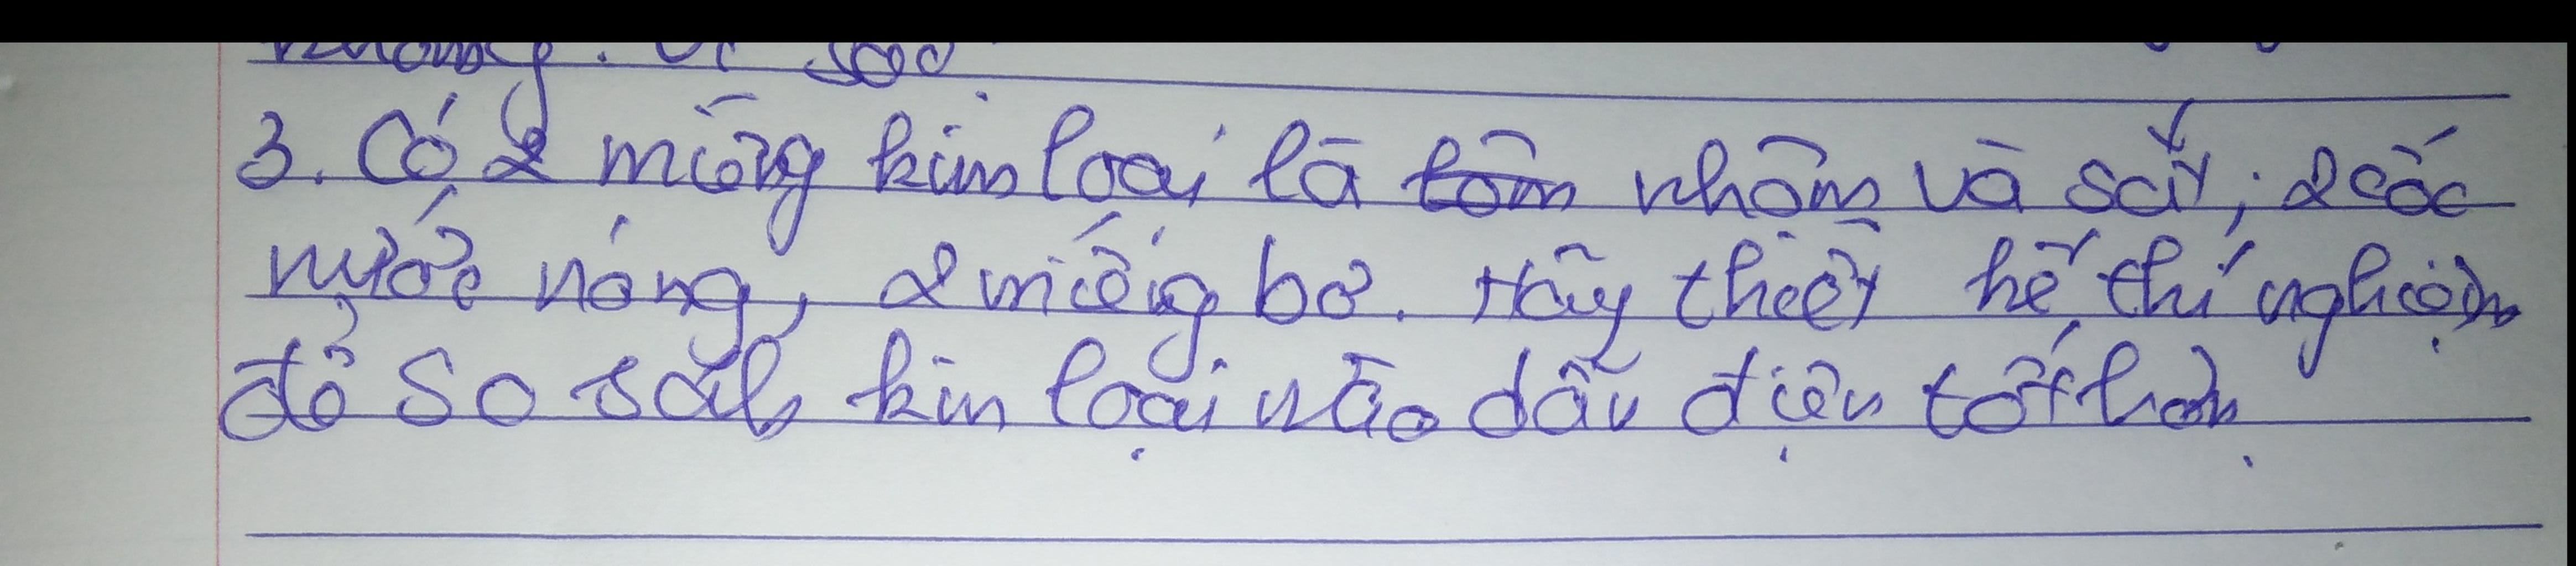 không. Vì sao
3. Có 2 miếng kim loại là tôm nhôm và sắt; 2 cốc
nước nóng, 2 miếng bơ. Hãy thiết kế thí nghiệm
để so sánh kim loại nào dẫn điện tốt hơn